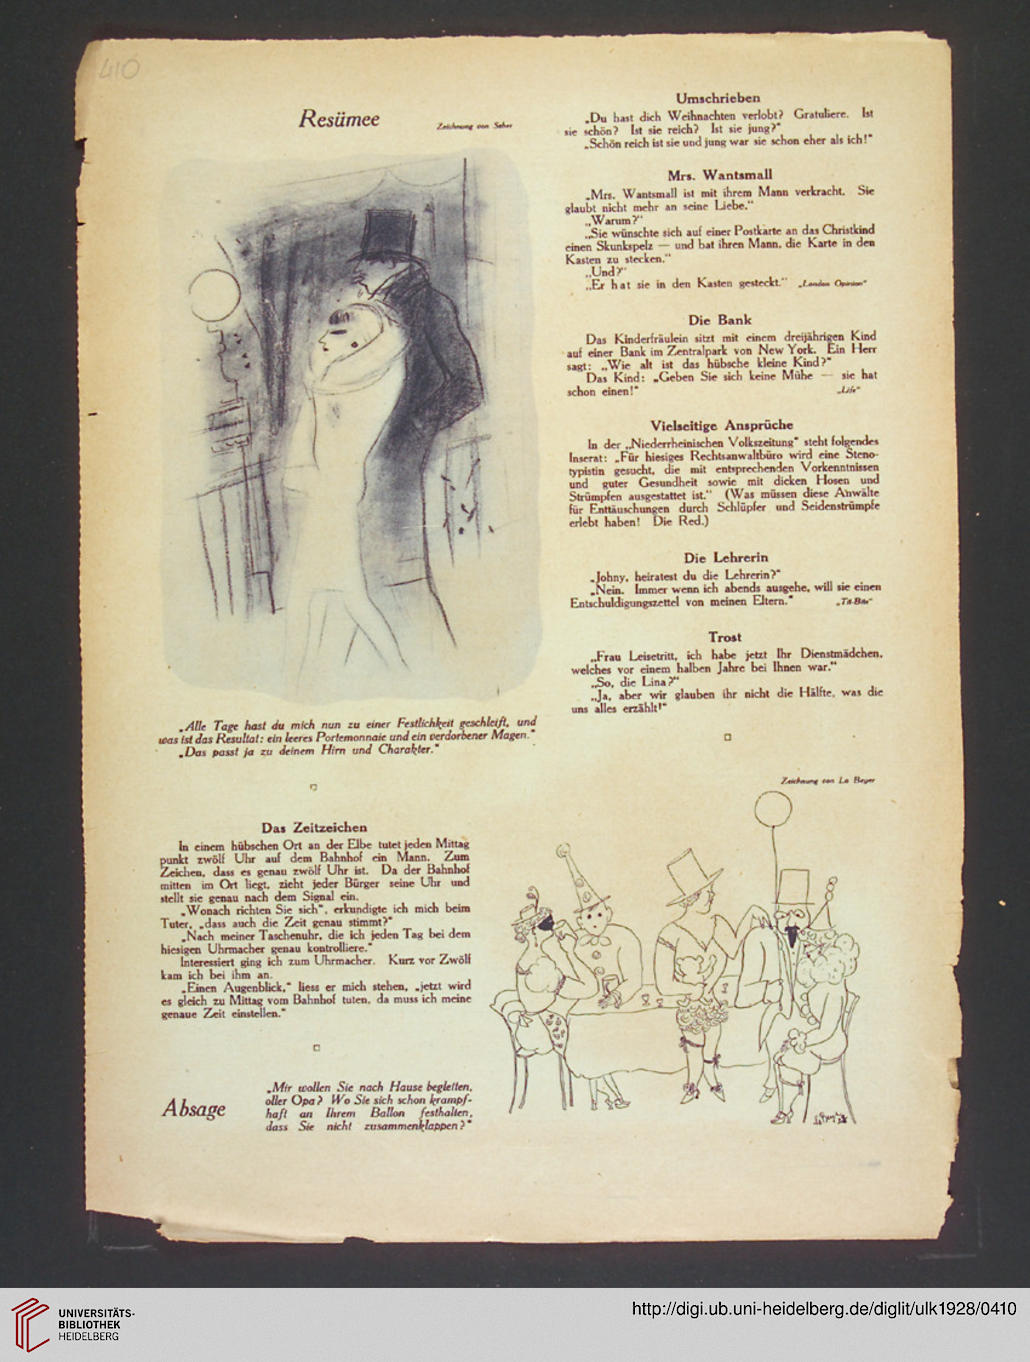 410
Resümee
Zeichnung von Seher
„Alle Tage hast du mich nun zu einer Festlichkeit geschleift, und
was ist das Resultat: ein leeres Portemonnaie und ein verdorbener Magen.“
„Das passt ja zu deinem Hirn und Charakter.“
Das Zeitzeichen
In einem hübschen Ort an der Elbe tutet jeden Mittag
punkt zwölf Uhr auf dem Bahnhof ein Mann. Zum
Zeichen, dass es genau zwölf Uhr ist. Da der Bahnhof
mitten im Ort liegt, zieht jeder Bürger seine Uhr und
stellt sie genau nach dem Signal ein.
„Wonach richten Sie sich“, erkundigte ich mich beim
Tuter, „dass auch die Zeit genau stimmt?“
„Nach meiner Taschenuhr, die ich jeden Tag bei dem
hiesigen Uhrmacher genau kontrolliere.“
Interessiert ging ich zum Uhrmacher. Kurz vor Zwölf
kam ich bei ihm an.
„Einen Augenblick,“ liess er mich stehen, „jetzt wird
es gleich zu Mittag vom Bahnhof tuten, da muss ich meine
genaue Zeit einstellen.“
Absage
„Mir wollen Sie nach Hause begleiten,
oller Opa? Wo Sie sich schon krampf-
haft an Ihrem Ballon festhalten,
dass Sie nicht zusammenklappen?“
Umschrieben
„Du hast dich Weihnachten verlobt? Gratuliere. Ist
sie schön? Ist sie reich? Ist sie jung?“
„Schön reich ist sie und jung war sie schon eher als ich!“
Mrs. Wantsmall
„Mrs. Wantsmall ist mit ihrem Mann verkracht. Sie
glaubt nicht mehr an seine Liebe.“
„Warum?“
„Sie wünschte sich auf einer Postkarte an das Christkind
einen Skunkspelz — und bat ihren Mann, die Karte in den
Kasten zu stecken.“
„Und?“
„Er hat sie in den Kasten gesteckt.“ „London Opinion“
Die Bank
Das Kinderfräulein sitzt mit einem dreijährigen Kind
auf einer Bank im Zentralpark von New York. Ein Herr
sagt: „Wie alt ist das hübsche kleine Kind?“
Das Kind: „Geben Sie sich keine Mühe — sie hat
schon einen!“ „Life“
Vielseitige Ansprüche
In der „Niederrheinischen Volkszeitung“ steht folgendes
Inserat: „Für hiesiges Rechtsanwaltbüro wird eine Steno-
typistin gesucht, die mit entsprechenden Vorkenntnissen
und guter Gesundheit sowie mit dicken Hosen und
Strümpfen ausgestattet ist.“ (Was müssen diese Anwälte
für Enttäuschungen durch Schlüpfer und Seidenstrümpfe
erlebt haben! Die Red.)
Die Lehrerin
„Johny, heiratest du die Lehrerin?“
„Nein. Immer wenn ich abends ausgehe, will sie einen
Entschuldigungszettel von meinen Eltern.“ „Tit-Bits“
Trost
„Frau Leisetritt, ich habe jetzt Ihr Dienstmädchen,
welches vor einem halben Jahre bei Ihnen war.“
„So, die Lina?“
„Ja, aber wir glauben ihr nicht die Hälfte, was die
uns alles erzählt!“
Zeichnung von Lo Beyer
UNIVERSITÄTS-
BIBLIOTHEK
HEIDELBERG
http://digi.ub.uni-heidelberg.de/diglit/ulk1928/0410